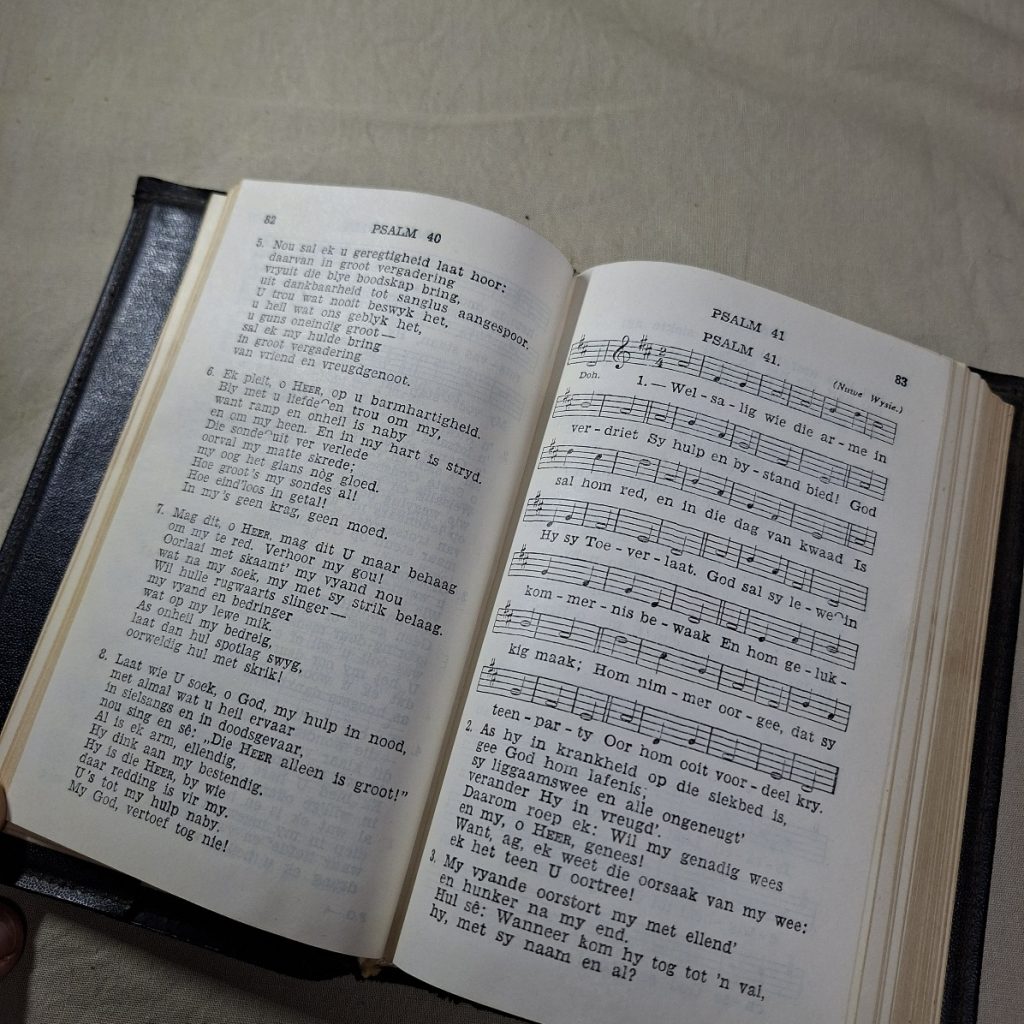 82
PSALM 40
5. Nou sal ek u geregtigheid laat hoor:
daarvan in groot vergadering
vryuit die blye boodskap bring,
uit dankbaarheid tot sanglus aangespoor.
U trou wat nooit beswyk het,
u heil wat ons geblyk het,
u guns oneindig groot—
sal ek my hulde bring
in groot vergadering
van vriend en vreugdgenoot.
6. Ek pleit, o HEER, op u barmhartigheid.
Bly met u liefde⁀en trou om my,
want ramp en onheil is naby
en om my heen. En in my hart is stryd.
Die sonde⁀uit ver verlede
oorval my matte skrede;
my oog het glans nòg gloed.
Hoe groot's my sondes al!
Hoe eind'loos in getal!
In my's geen krag, geen moed.
7. Mag dit, o HEER, mag dit U maar behaag
om my te red. Verhoor my gou!
Oorlaai met skaamt' my vyand nou
wat na my soek, my met sy strik belaag.
Wil hulle rugwaarts slinger—
my vyand en bedringer
wat op my lewe mik.
As onheil my bedreig,
laat dan hul spotlag swyg,
oorweldig hul met skrik!
8. Laat wie U soek, o God, my hulp in nood,
met almal wat u heil ervaar
in sielsangs en in doodsgevaar,
nou sing en sê: „Die HEER alleen is groot!”
Al is ek arm, ellendig,
Hy dink aan my bestendig,
Hy is die HEER, by wie
daar redding is vir my.
U's tot my hulp naby.
My God, vertoef tog nie!
PSALM 41
83
PSALM 41.
(Nuwe Wysie.)
Doh.
1. — Wel - sa - lig wie die ar - me in
ver - driet Sy hulp en by - stand bied! God
sal hom red, en in die dag van kwaad Is
Hy sy Toe - ver - laat. God sal sy le - we⁀in
kom - mer - nis be - waak En hom ge - luk -
kig maak; Hom nim - mer oor - gee, dat sy
teen - par - ty Oor hom ooit voor - deel kry.
2. As hy in krankheid op die siekbed is,
gee God hom lafenis,
sy liggaamswee en alle ongeneugt'
verander Hy in vreugd'.
Daarom roep ek: Wil my genadig wees
en my, o HEER, genees!
Want, ag, ek weet die oorsaak van my wee:
ek het teen U oortree!
3. My vyande oorstort my met ellend'
en hunker na my end.
Hul sê: Wanneer kom hy tog tot 'n val,
hy, met sy naam en al?